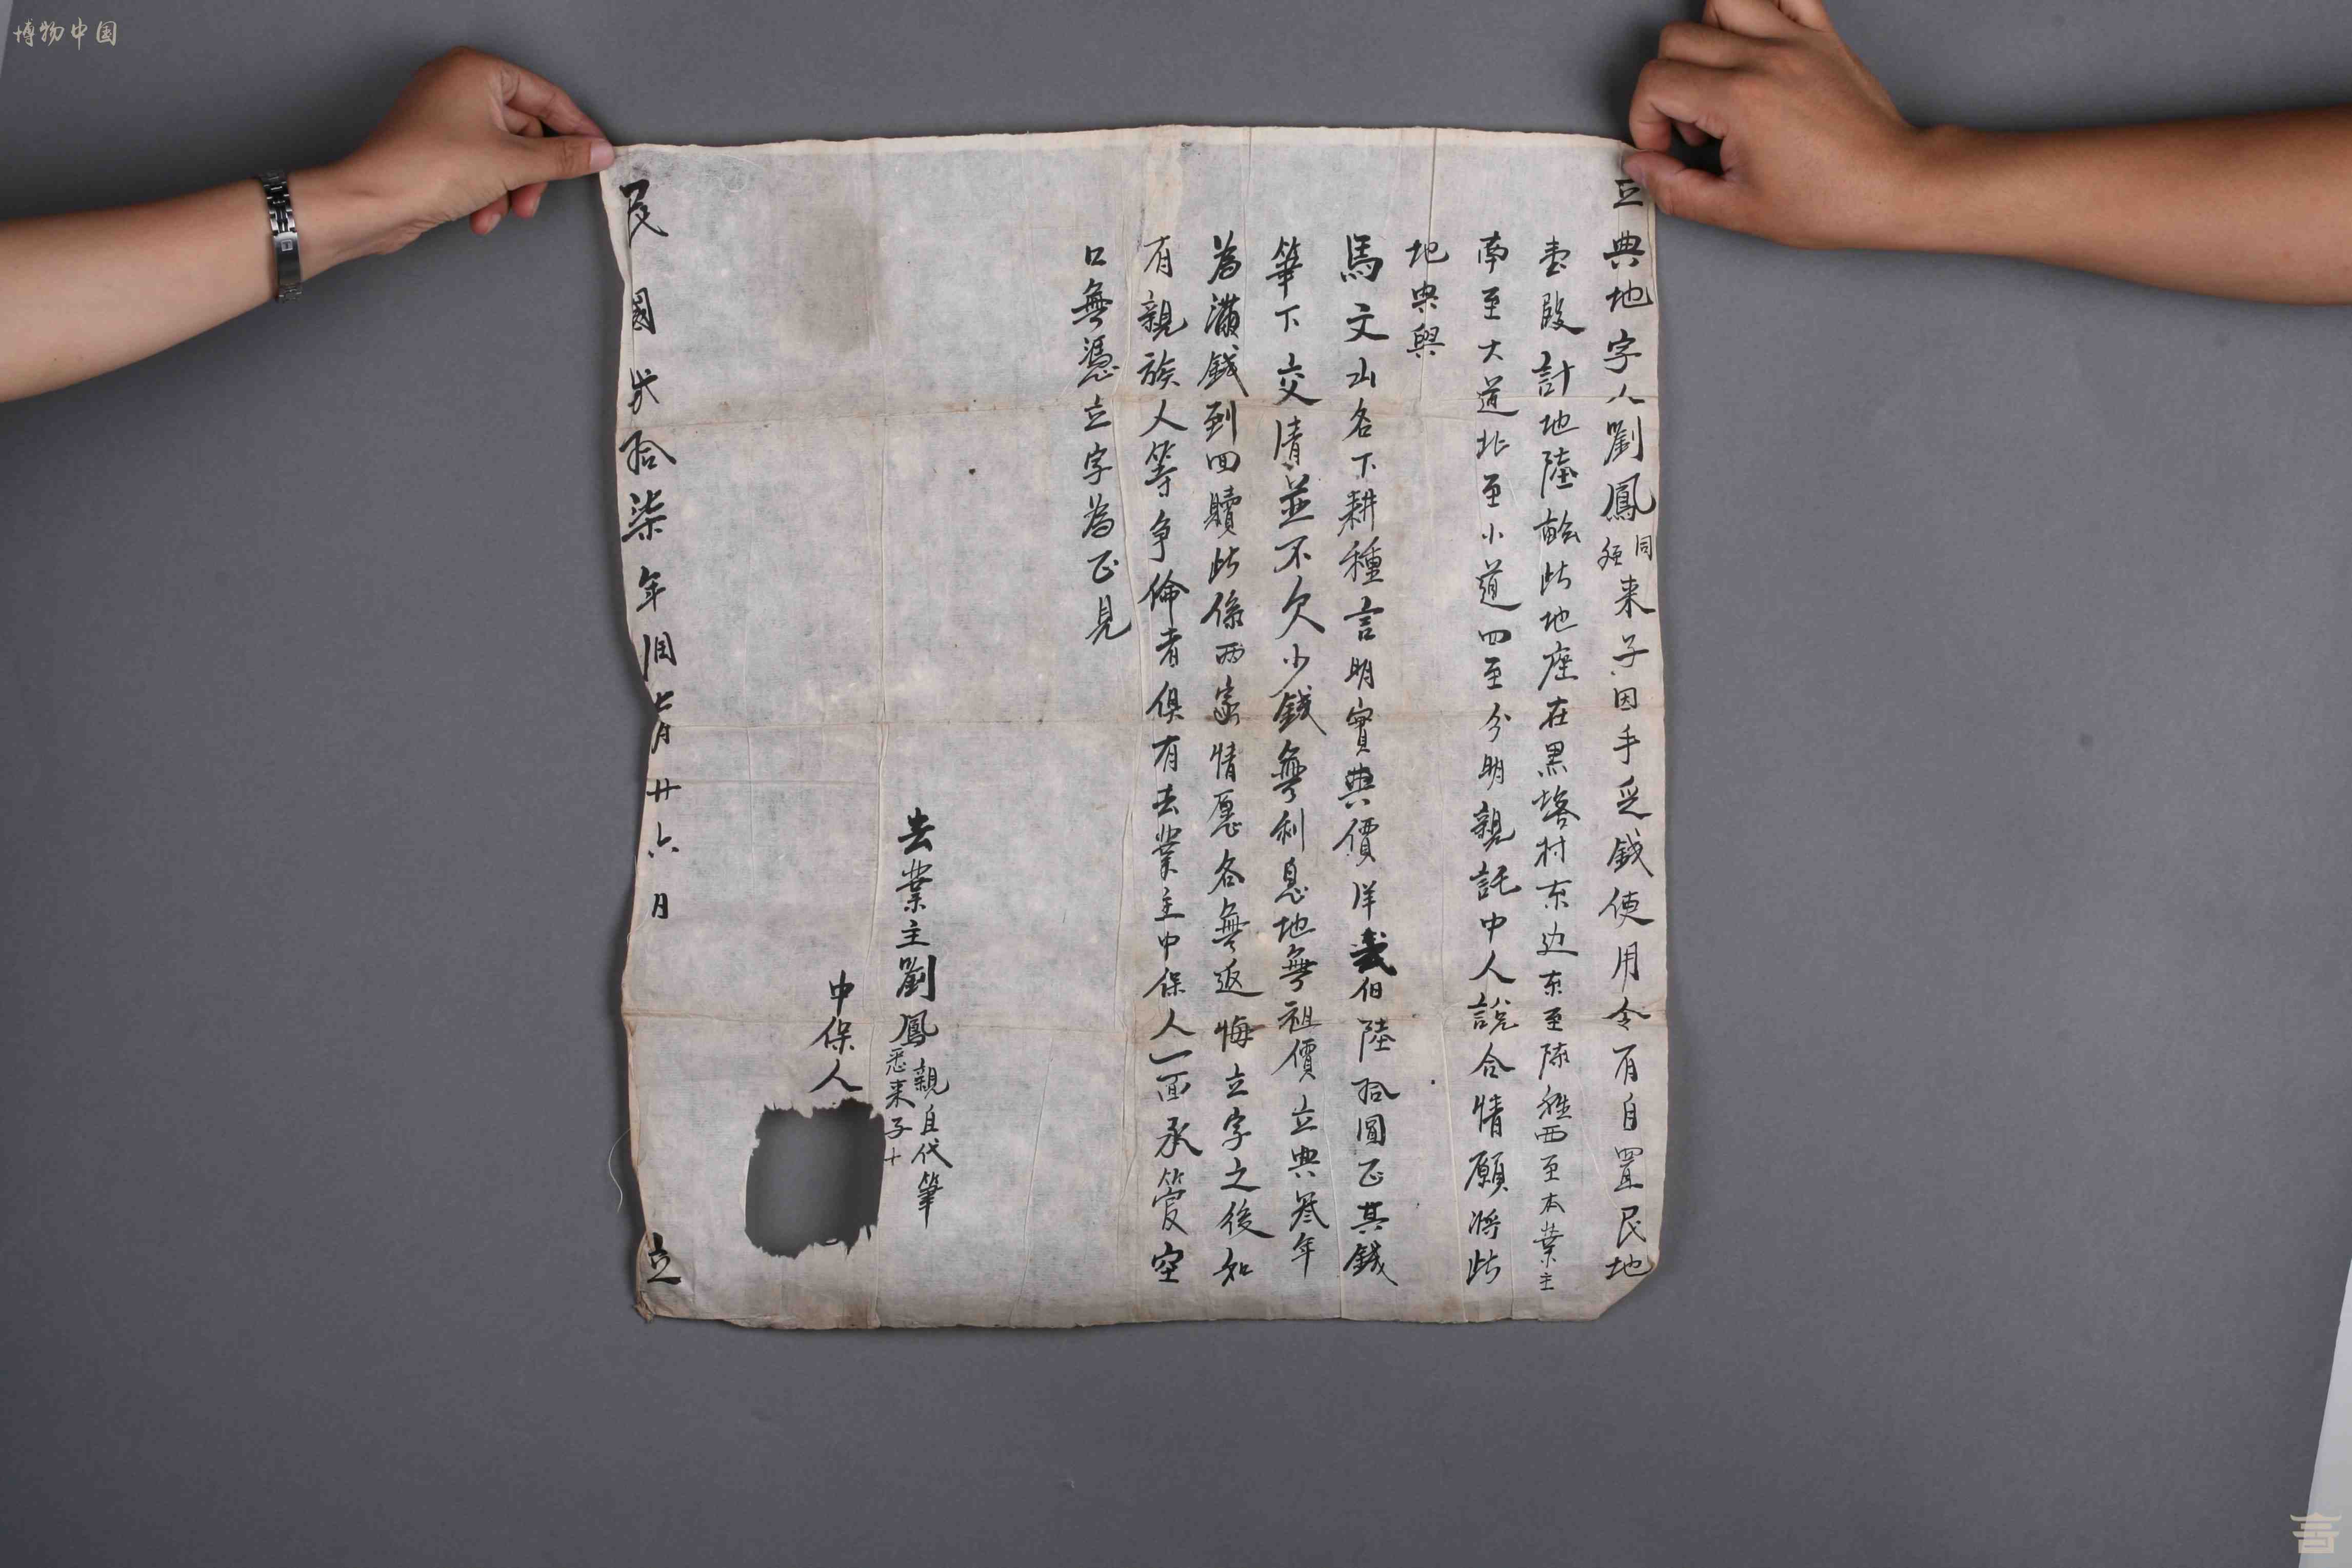 博物中国
立典地字人劉鳳同姪来子因手乏錢使用今有自置民地
壹段計地陸畝此地座在黑塔村東边東至陈姓西至本業主
南至大道北至小道四至分明親託中人説合情願將此
地典與
馬文山名下耕種言明實典價洋貳佰陸拾圓正其錢
筆下交清並不欠少錢無利息地無租價立典叁年
為滿錢到回贖此係兩家情愿各無返悔立字之後如
有親族人等争倫者俱有去業主中保人一面承管空
口無憑立字為正見
去業主劉鳳親自代筆
来子十
中保人
民國貳拾柒年润七月廿六日
立